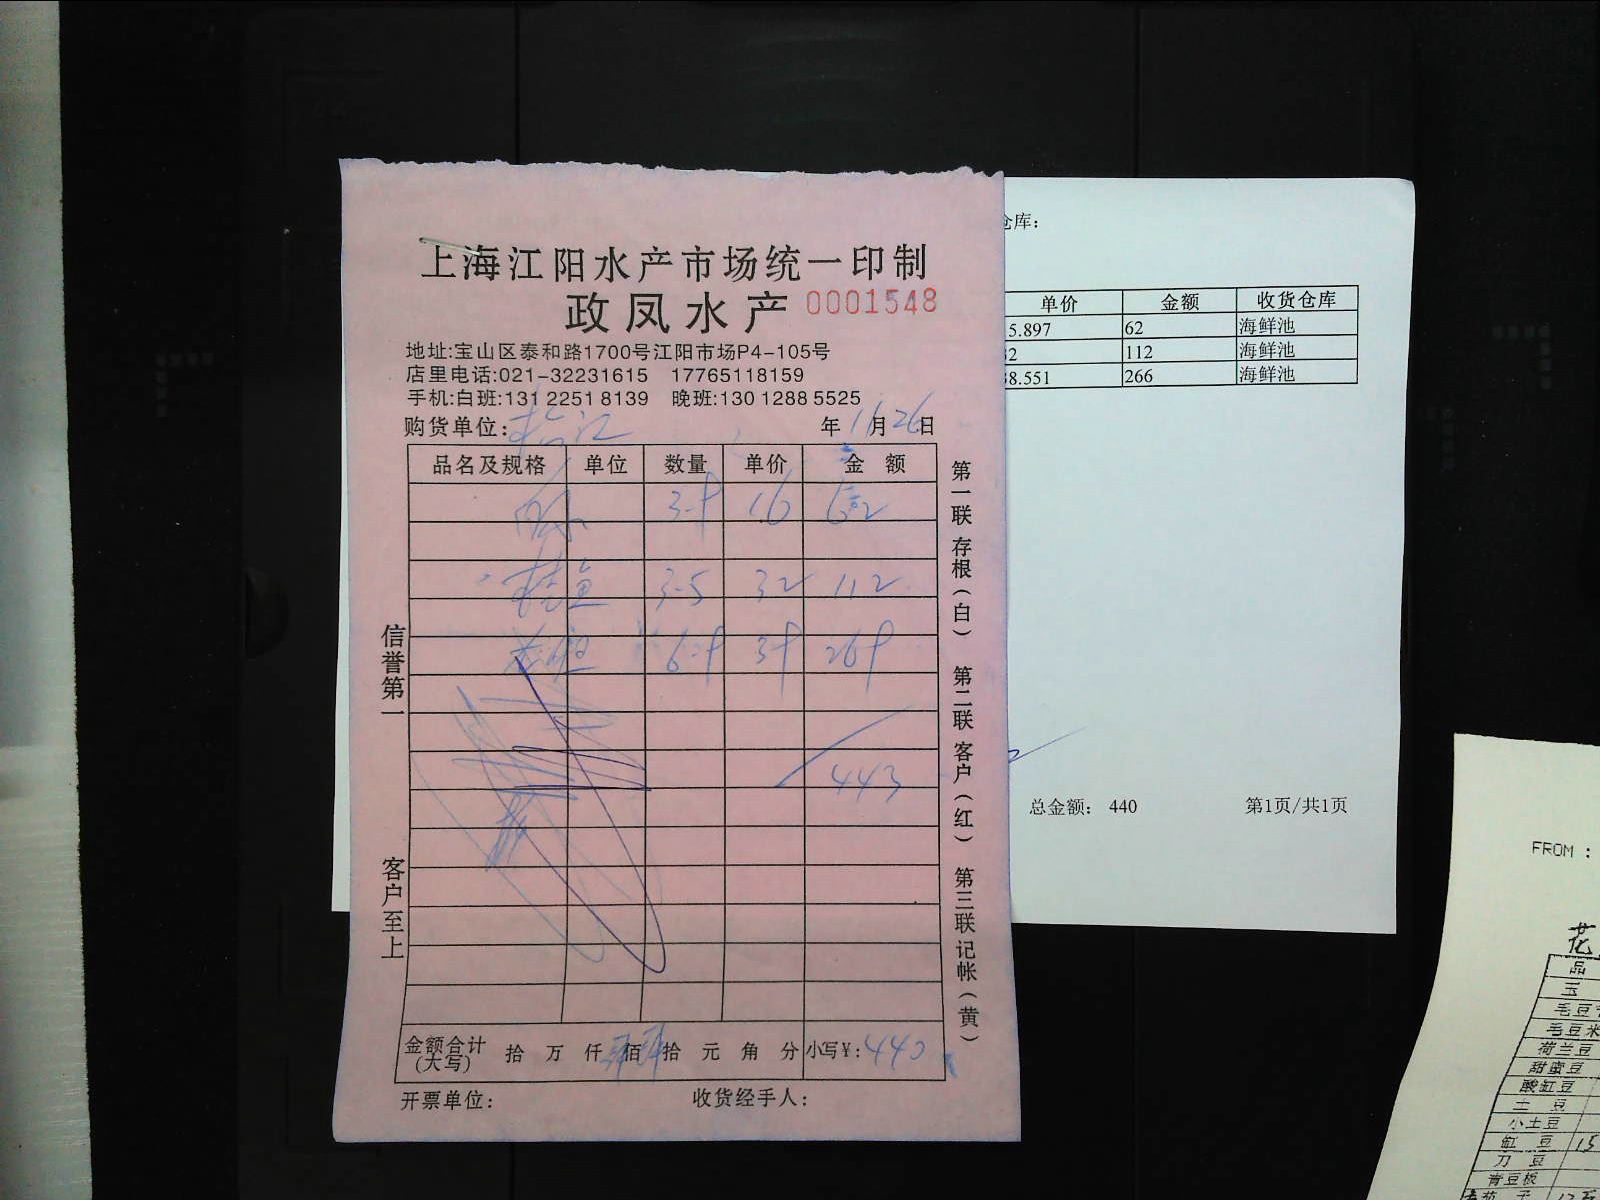 上海江阳水产市场统一印制
政凤水产 0001548
地址:宝山区泰和路1700号江阳市场P4-105号
店里电话:021-32231615 17765118159
手机:白班:131 2251 8139 晚班:130 1288 5525
购货单位: 年 11月26日
品名及规格 单位 数量 单价 金额
16
鱼 3.5 32 112
443
金额合计(大写) 拾 万 仟 佰 拾 元 角 分 小写¥:440
开票单位: 收货经手人:
信誉第一
客户至上
第一联 存根(白) 第二联 客户(红) 第三联 记帐(黄)
仓库:
单价 金额 收货仓库
5.897 62 海鲜池
32 112 海鲜池
38.551 266 海鲜池
总金额: 440 第1页/共1页
FROM :
花
品
玉
毛豆
毛豆米
荷兰豆
甜蜜豆
酸缸豆
土豆
小土豆
缸豆 15
刀豆
青豆板